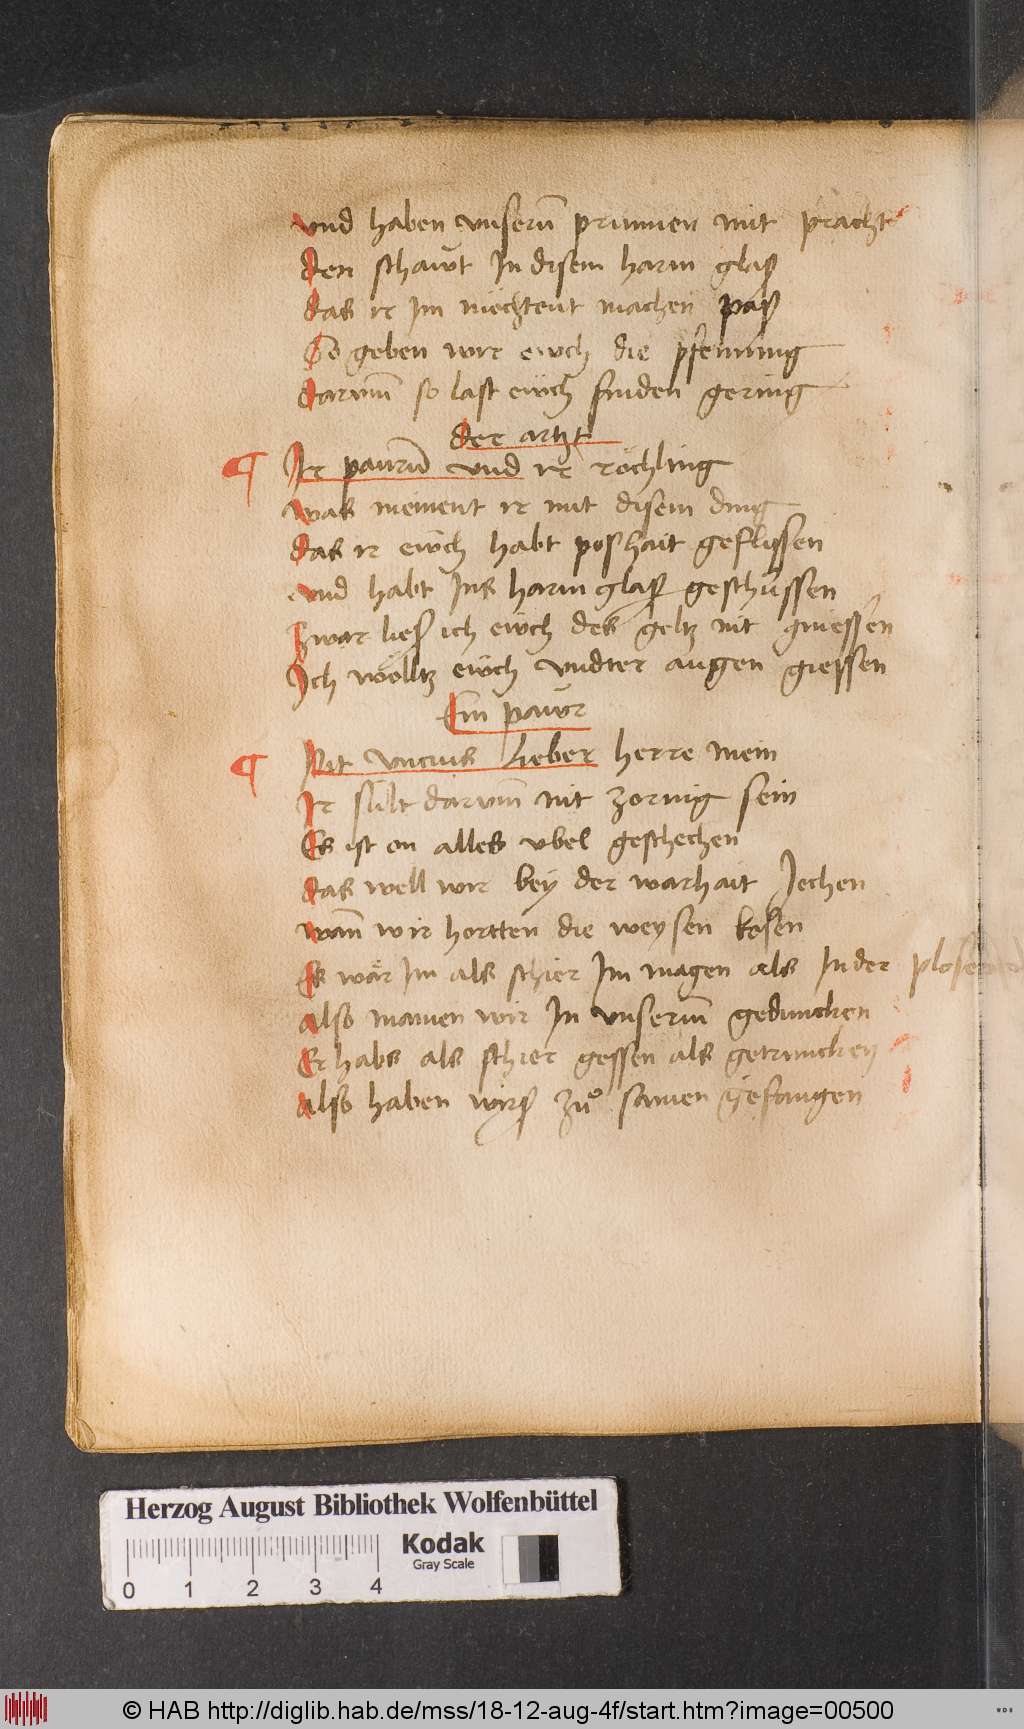 vnd haben vnserñ prunnen mit pracht
den schawt In disem harm glaß
das ir im möchtent machen paß
So geben wir ewch die pfenning
darumb so last ewch finden gering
der artzt
Ir paurñ vnd ir röchling
was meinent ir mit disem ding
das ir ewch habt poshait geflissen
vnd habt Ins harm glaß geschissen
zwar ließ ich ewch des geltz nit gniessen
Ich wölltz ewch vndter augen giessen
Ein pawr
Nit lieber herre mein
Ir sült darumb nit zornig sein
Es ist on alles vbel geschechen
das well wir bey der warhait Jechen
wann wir hortten die weysen kosen
Es wär Im als schier Im magen als In der plosen
also namen wir In vnserm geduncken
Er habs als schier gessen als getruncken
also haben wirß zů samen gefangen
Herzog August Bibliothek Wolfenbüttel
Kodak
Gray Scale
0 1 2 3 4
© HAB http://diglib.hab.de/mss/18-12-aug-4f/start.htm?image=00500